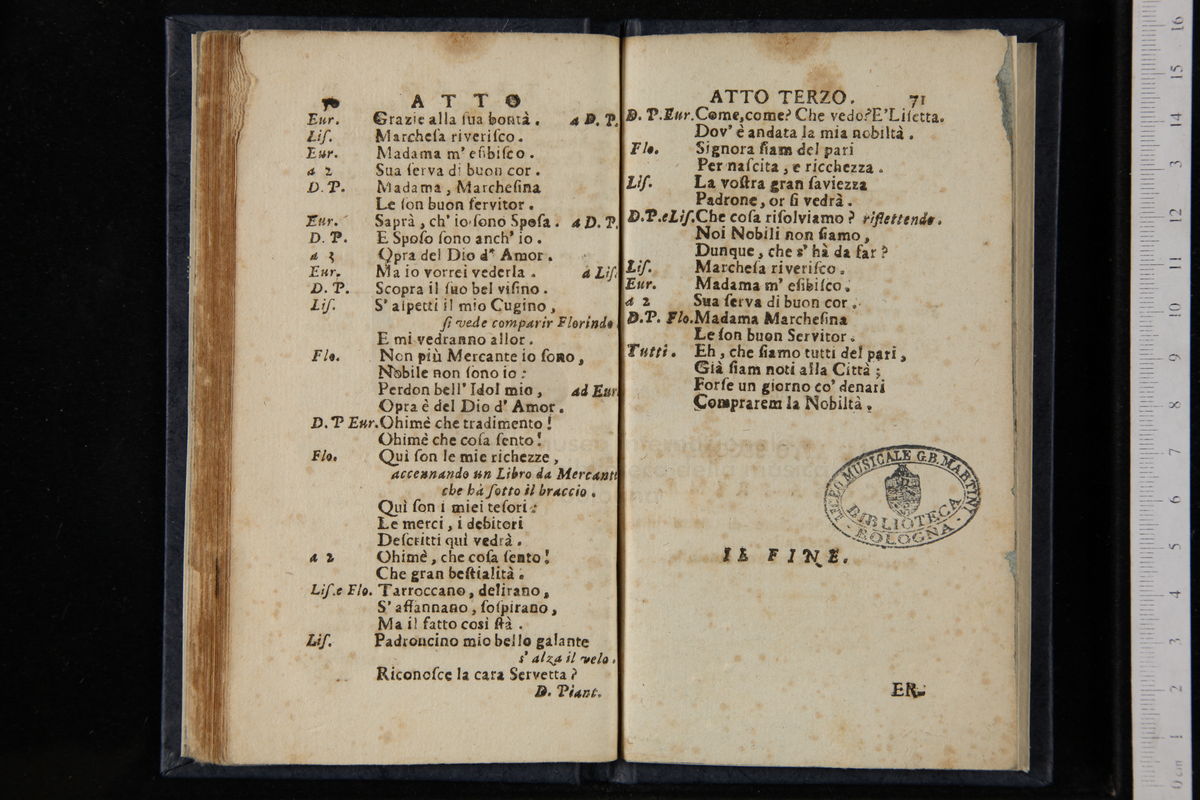 70 ATTO
Eur. Grazie alla ſua bontà. a D. P.
Liſ. Marcheſa riveriſco.
Eur. Madama m' eſibiſco.
a 2 Sua ſerva di buon cor.
D. P. Madama, Marcheſina
Le ſon buon ſervitor.
Eur. Saprà, ch' io ſono Spoſa. a D. P.
D. P. E Spoſo ſono anch' io.
a 3 Opra del Dio d' Amor.
Eur. Ma io vorrei vederla. a Liſ.
D. P. Scopra il ſuo bel viſino.
Liſ. S' aſpetti il mio Cugino,
ſi vede comparir Florindo.
E mi vedranno allor.
Flo. Non più Mercante io ſono,
Nobile non ſono io:
Perdon bell' Idol mio, ad Eur.
Opra è del Dio d' Amor.
D. P Eur. Ohimè che tradimento!
Ohimè che coſa ſento!
Flo. Quì ſon le mie richezze,
accennando un Libro da Mercanti
che hà ſotto il braccio.
Quì ſon i miei teſori:
Le merci, i debitori
Deſcritti quì vedrà.
a 2 Ohimè, che coſa ſento!
Che gran beſtialità.
Liſ. e Flo. Tarroccano, delirano,
S' affannano, ſoſpirano,
Ma il fatto così ſtà.
Liſ. Padroncino mio bello galante
s' alza il velo.
Riconoſce la cara Servetta?
D. Piant.
ATTO TERZO. 71
D. P. Eur. Come, come? Che vedo? E' Liſetta.
Dov' è andata la mia nobiltà.
Flo. Signora ſiam del pari
Per naſcita, e ricchezza.
Liſ. La voſtra gran ſaviezza
Padrone, or ſi vedrà.
D.P. e Liſ. Che coſa riſolviamo? riflettendo.
Noi Nobili non ſiamo,
Dunque, che s' hà da far?
Liſ. Marcheſa riveriſco.
Eur. Madama m' eſibiſco.
a 2 Sua ſerva di buon cor.
D.P. Flo. Madama Marcheſina
Le ſon buon Servitor.
Tutti. Eh, che ſiamo tutti del pari,
Già ſiam noti alla Città;
Forſe un giorno co' denari
Comprarem la Nobiltà.
LICEO MUSICALE G.B. MARTINI
BIBLIOTECA
- BOLOGNA -
IL FINE.
ER-